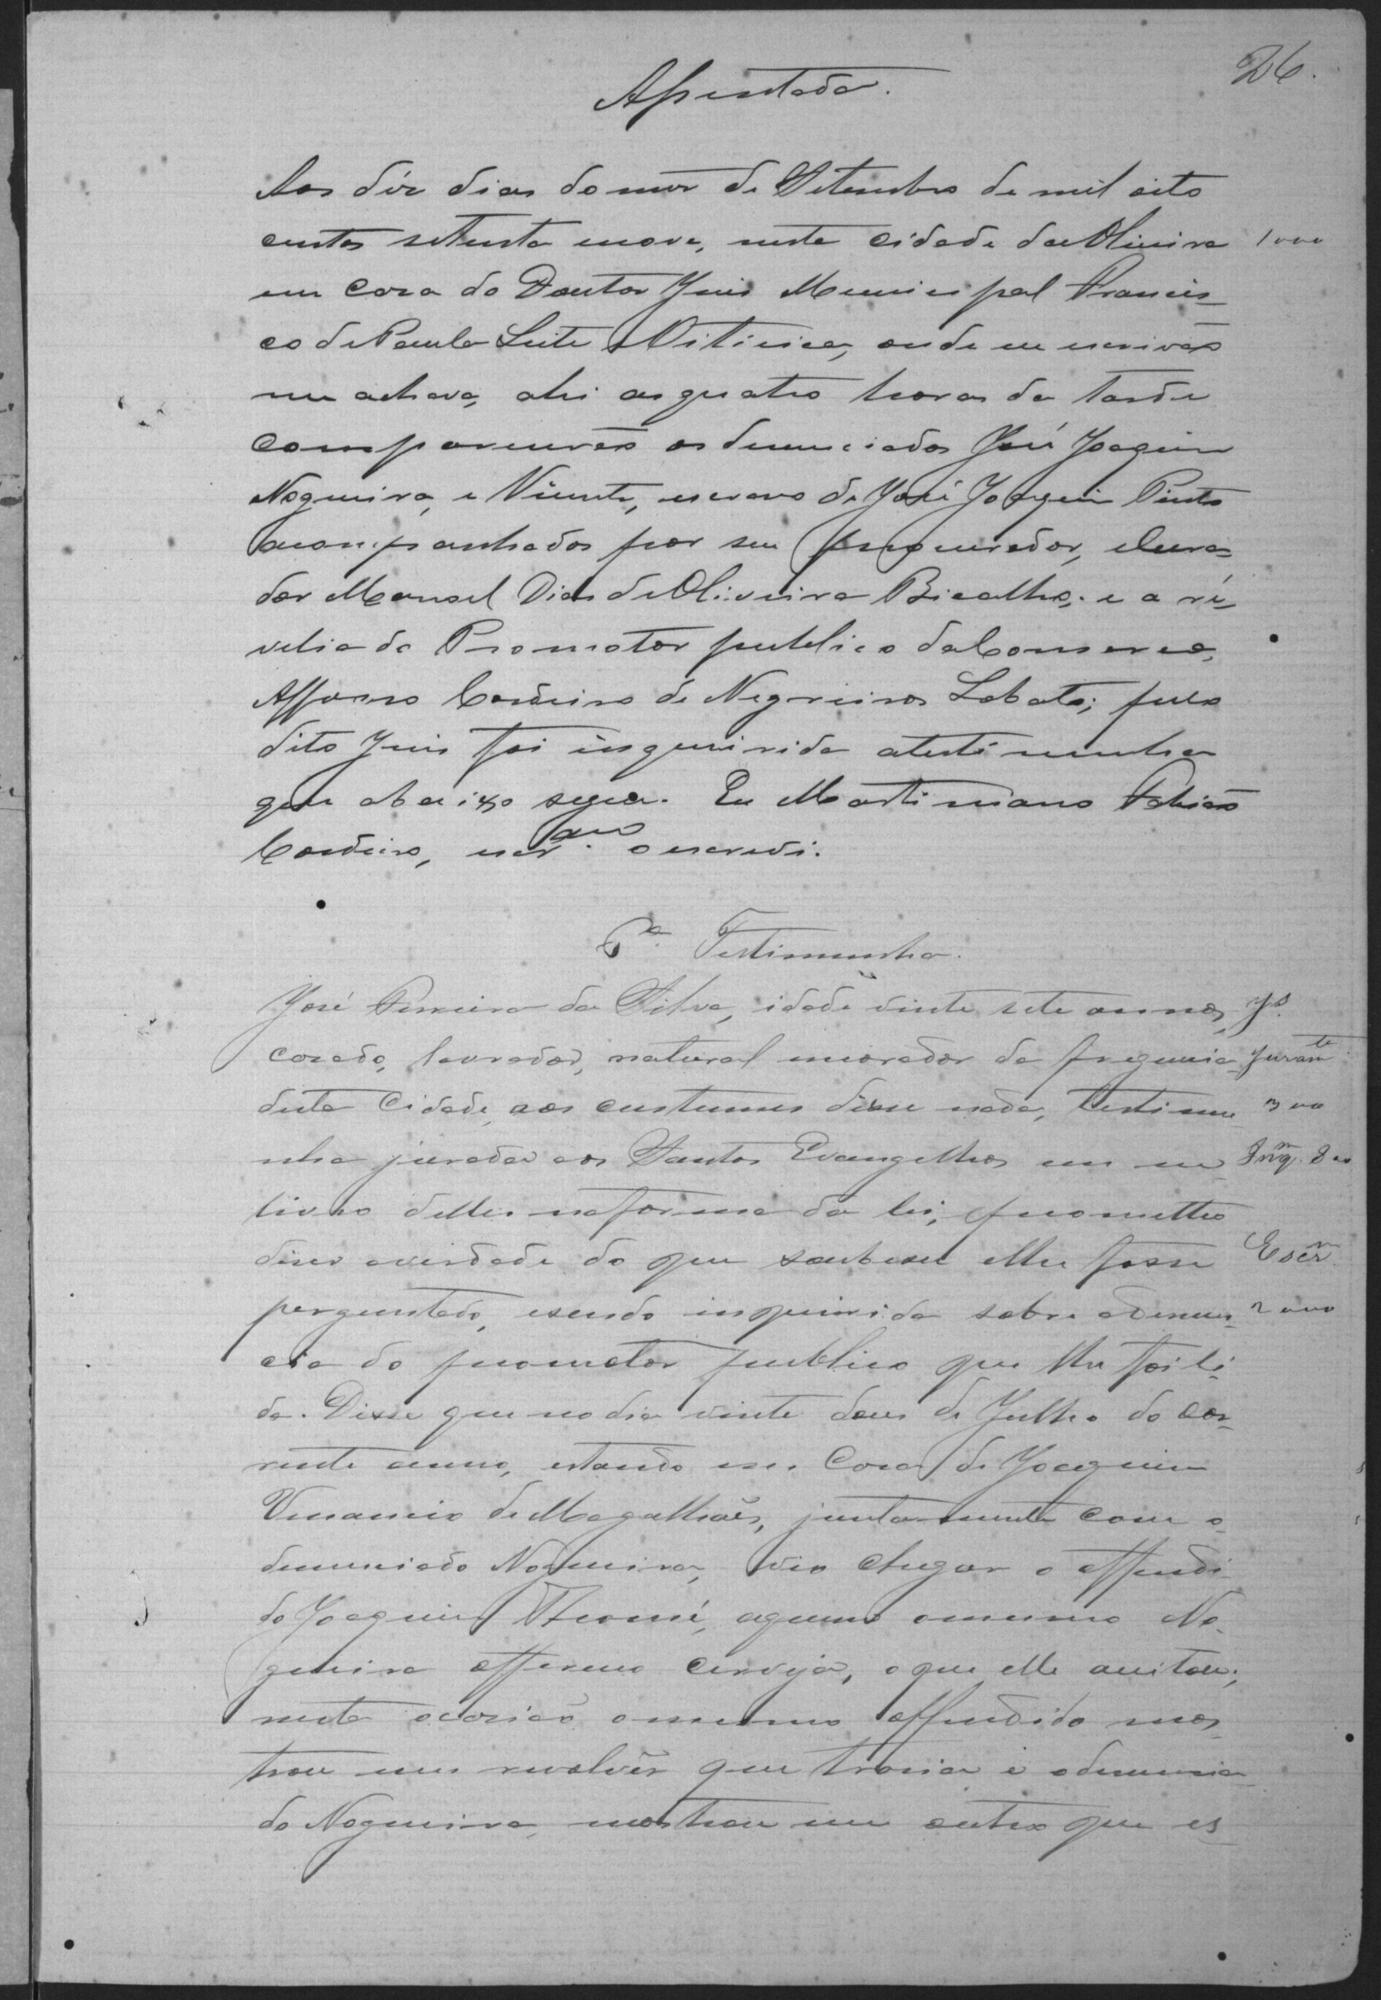 26.
Assentada.
Aos déz dias do mes de Setembro de mil oito
centos setenta enove, nesta cidade da Oliveira 1000
em casa do Doutor Juis Municipal Francis-
co de Paula Leite Oiticica, onde eu escrivão
me achava, ahi as quatro horas da tarde
comparecerão os denunciados José Joaquim
Nogueira, e Vicente, escravo de José Joaquim Pinto
acompanhados por seu procurador, e Cura-
dor Manoel Dias de Oliveira Bicalho; e a ré-
velia do Promotor publico da Comarca,
Affonso Cordeiro de Negreiros Lobato; pelo
dito Juis foi inquirida a testimunha
que abaixo segue. Eu Martiniano
Cordeiro, escr.am o escrevi.
6a. Testimunha.
José Ferreira da Silva, idade vinte sete annos, Js.
casado, lavrador, natural morador da freguesia Juramte
desta Cidade, aos custumes disse nada, testimu-
nha jurada aos Santos Evangelhos em um Inqm.
livro delles na forma da lei, prometteo
diser averdade do que soubese e lhe fosse Escrm
perguntado, esendo inquirida sobre adenun- 2000
cia do promotor publico que lhe foi li-
da. Disse que no dia vinte dous de Julho do cor-
rente anno, estando em Casa de Joaquim
Venancio de Magalhães, juntamente com o
denunciado Nogueira, vio chegar o offendi
do Joaquim Thomé, aquem omesmo No-
gueira offereceo cerveja, o que elle aceitou;
nesta occasião omesmo offendido mos-
trou um revolvêr que trasia e odenuncia-
do Nogueira, mostrou um outro que es-